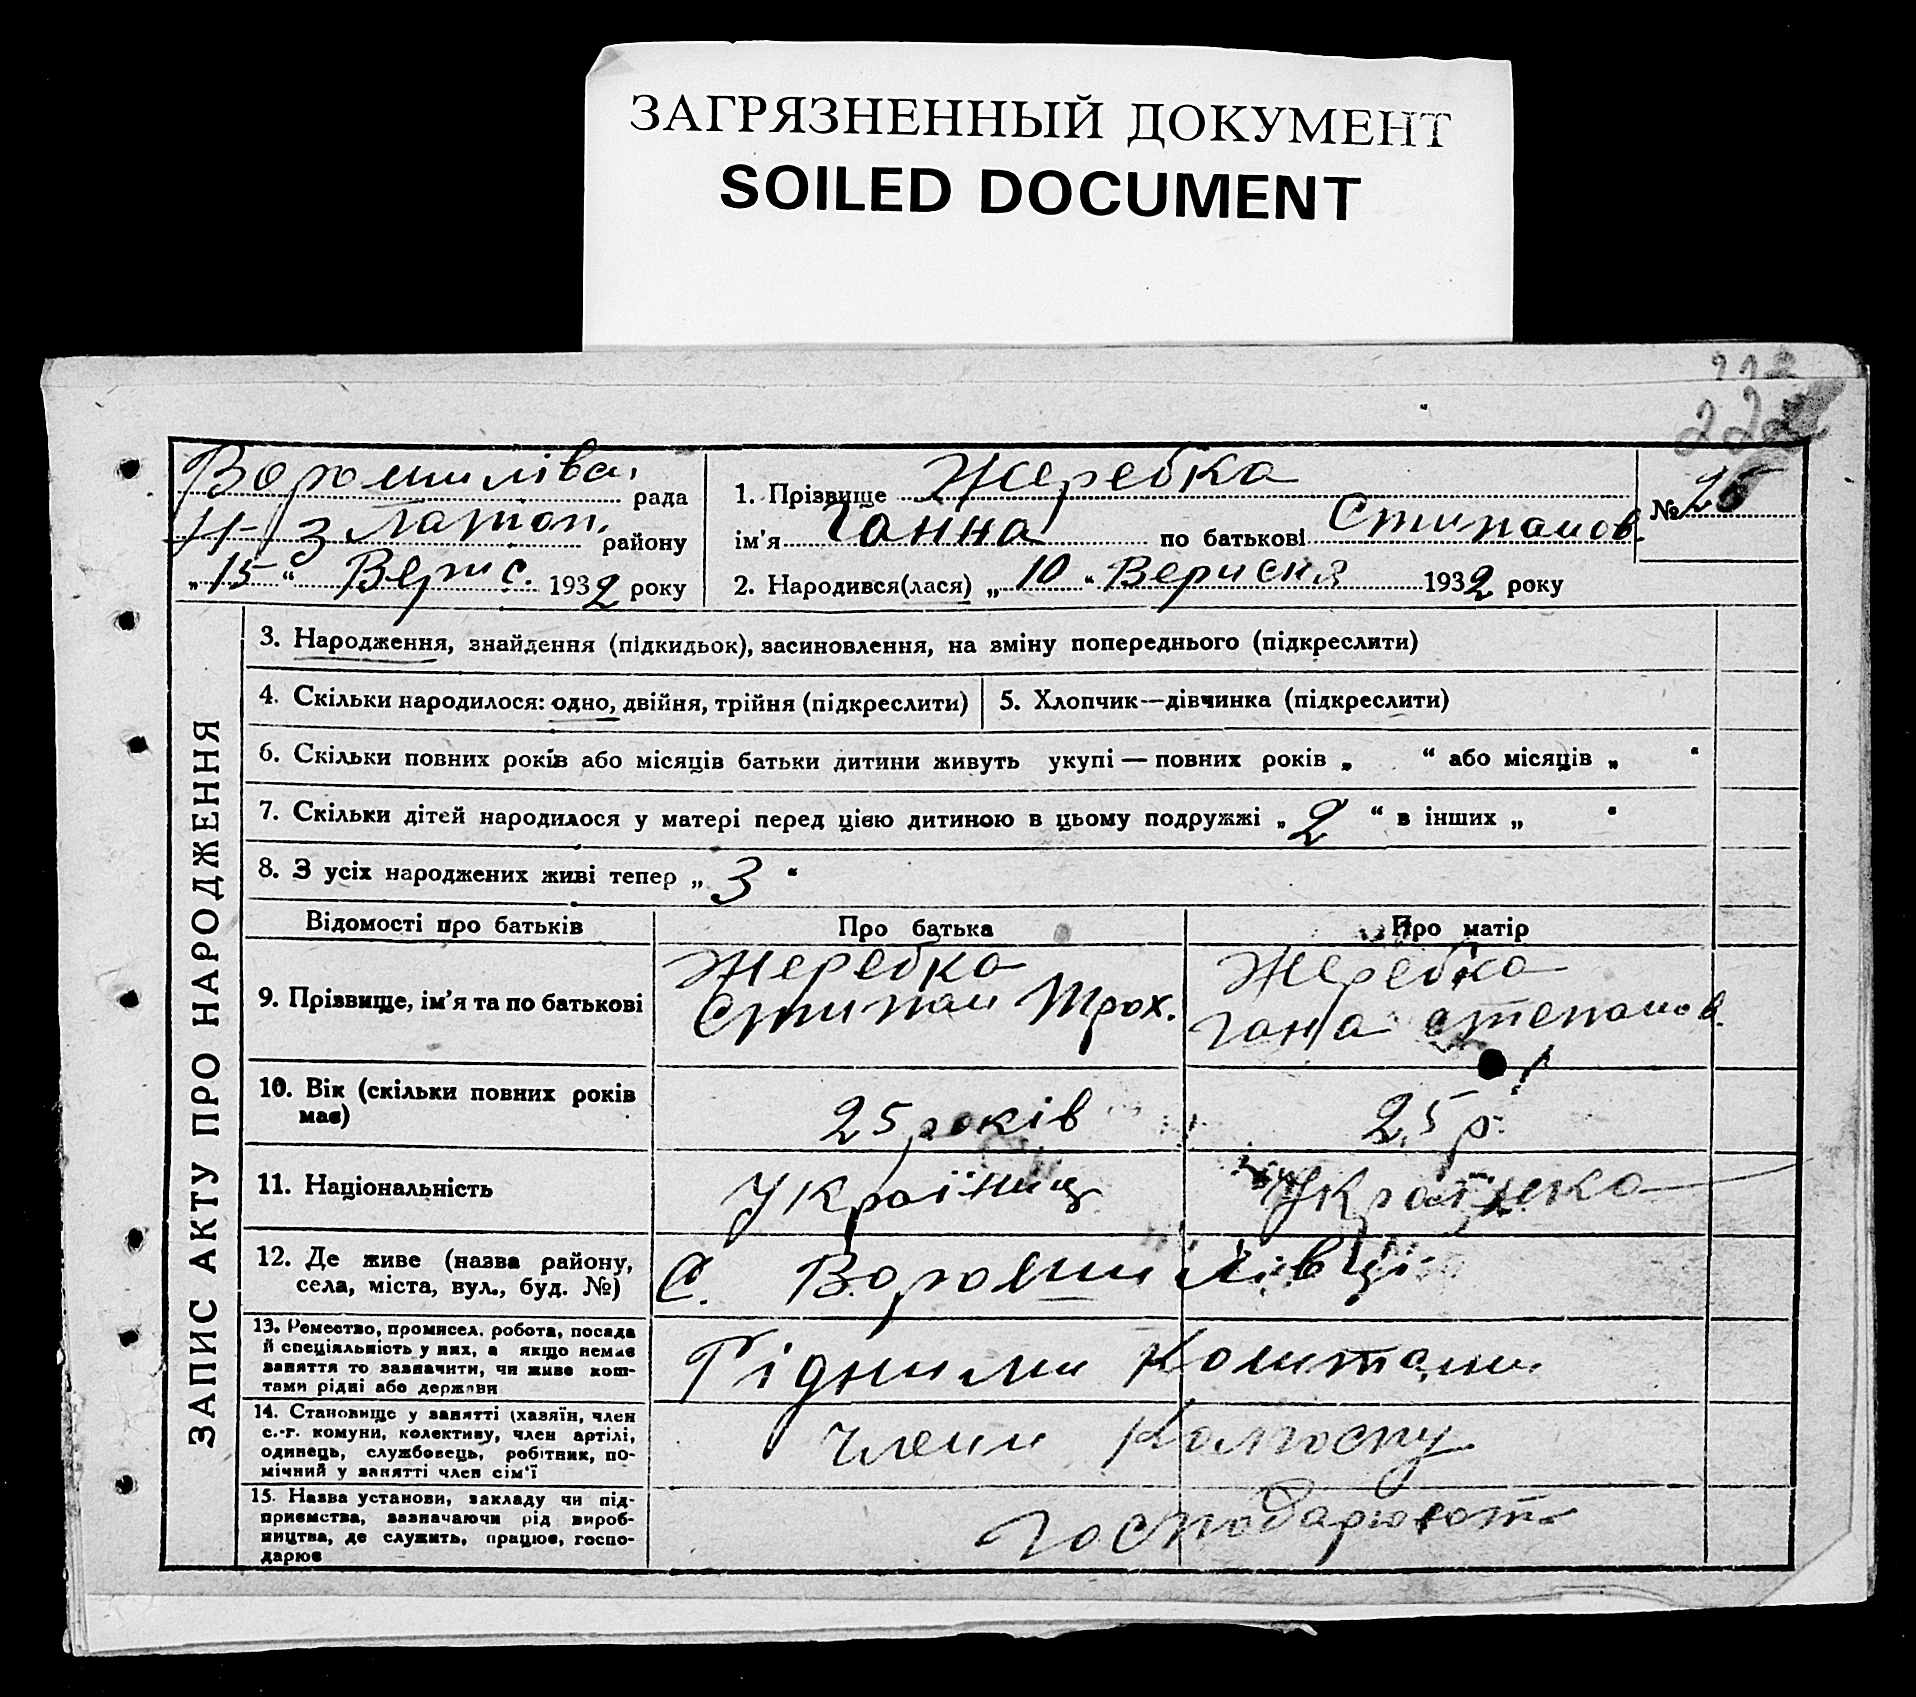 ЗАГРЯЗНЕННЫЙ ДОКУМЕНТ
SOILED DOCUMENT
222
Ворошилівс. рада
Н-Златоп. району
„15“ Верис. 1932 року
1. Прізвище Жеребка
ім'я Ганна по батькові Стипанов.
2. Народився(лася) „10“ Верисня 1932 року
№ 25
ЗАПИС АКТУ ПРО НАРОДЖЕННЯ
3. Народження, знайдення (підкидьок), засиновлення, на зміну попереднього (підкреслити)
4. Скільки народилося: одно, двійня, трійня (підкреслити)
5. Хлопчик—дівчинка (підкреслити)
6. Скільки повних років або місяців батьки дитини живуть укупі — повних років „ “ або місяців „ “
7. Скільки дітей народилося у матері перед цією дитиною в цьому подружжі „ 2 “ в інших „ “
8. З усіх народжених живі тепер „ 3 “
Відомості про батьків
Про батька
Про матір
9. Прізвище, ім'я та по батькові
Жеребка
Стипан Трох.
Жеребка
Гана степанов.
10. Вік (скільки повних років
має)
25 років
25 р.
11. Національність
Україниц
Українка
12. Де живе (назва району,
села, міста, вул., буд. №)
С. Ворошилівці
13. Ремество, промисел, робота, посада
й спеціяльність у них, а якщо немає
заняття то зазначити, чи живе кош-
тами рідні або держави
Рідними Коштами
14. Становище у занятті (хазяїн, член
с.-г. комуни, колективу, член артілі,
одинець, службовець, робітник, по-
мічний у занятті член сім'ї
члени Колгоспу
15. Назва установи, закладу чи під-
приємства, зазначаючи рід вироб-
ництва, де служить, працює, госпо-
дарює
господарюют